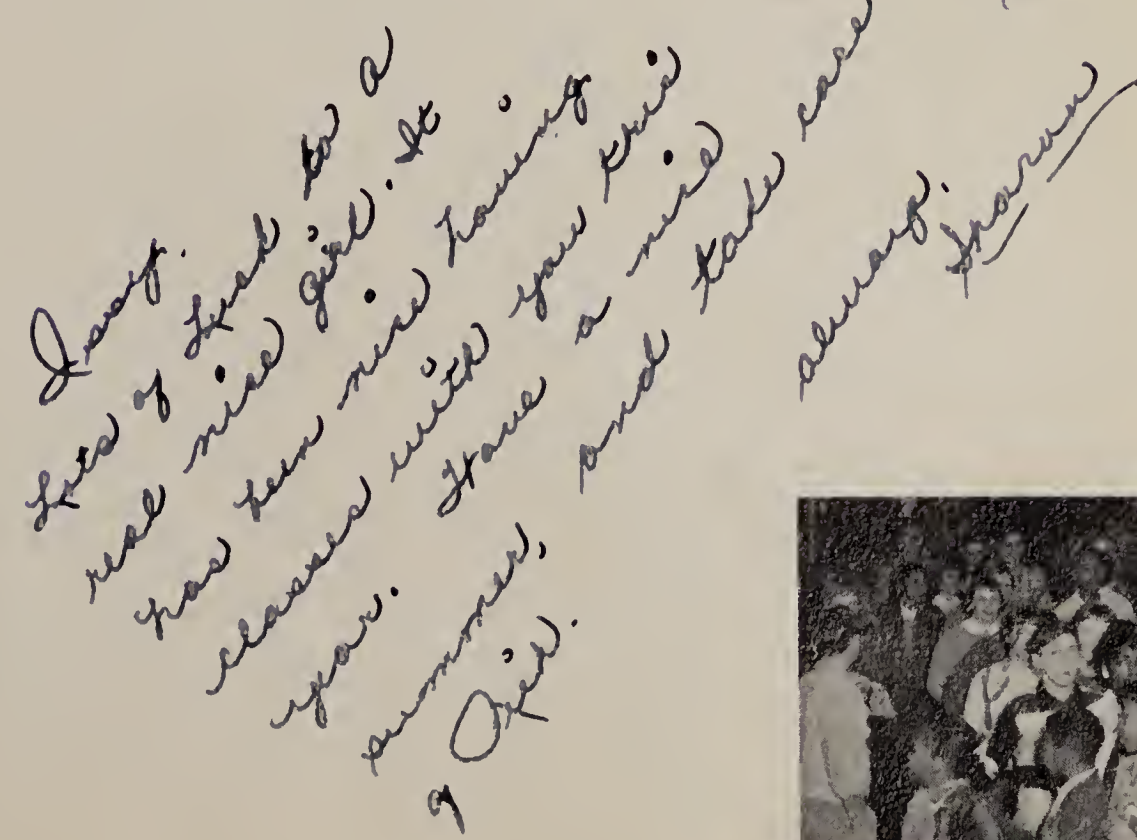 Lots of Luck to a
real nice girl. It
has been nice having
classes with you this
year. Have a nice
summer, and take care
of
always.
Sharon